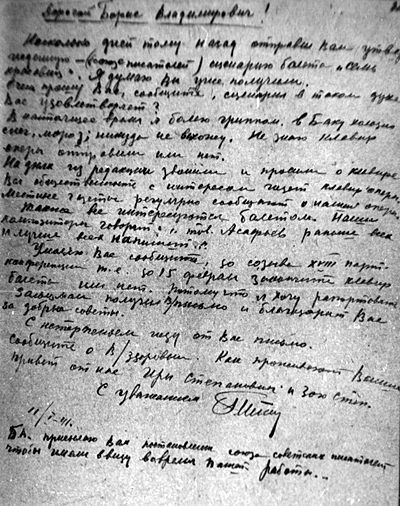 Дорогой Борис Владимирович!
Несколько дней тому назад отправил Вам утвер
жденную — (союз писателей) сценарию балета „Семь
красавиц“. Я думаю Вы уже получили.
Очень прошу Вас, сообщите, сценария в таком духе
Вас удовлетворяет?
В настоящее время я болею гриппом, в Баку холодно
снег, мороз; никуда не выхожу. Не знаю клавир
оперы отправили или нет.
На днях из редакции звонили и просили о клавире
Вся общественность с интересом ждет клавир оперы,
Местные газеты регулярно сообщают о нашей опере.
Также все интересуются балетом. Наши
композиторы говорят: „тов. Асафьев раньше всех
и лучше всех напишет“.
Умоляю Вас сообщите, до созыва XVIII парт.
конференции т.е. до 15 февраля закончите клавир
балета или нет. Потому что я хочу рапортовать
Зальцман получил письмо и благодарит Вас
за добрые советы.
С нетерпением жду от Вас письмо.
Сообщите о В/здоровии. Как проживают Ваши
Привет от нас Ире Степановне и Зое Степ.
С уважением
11/I-41.
Б.В. присылаю Вам постановление союза советских писателей
чтобы имели ввиду во время Вашей работы...